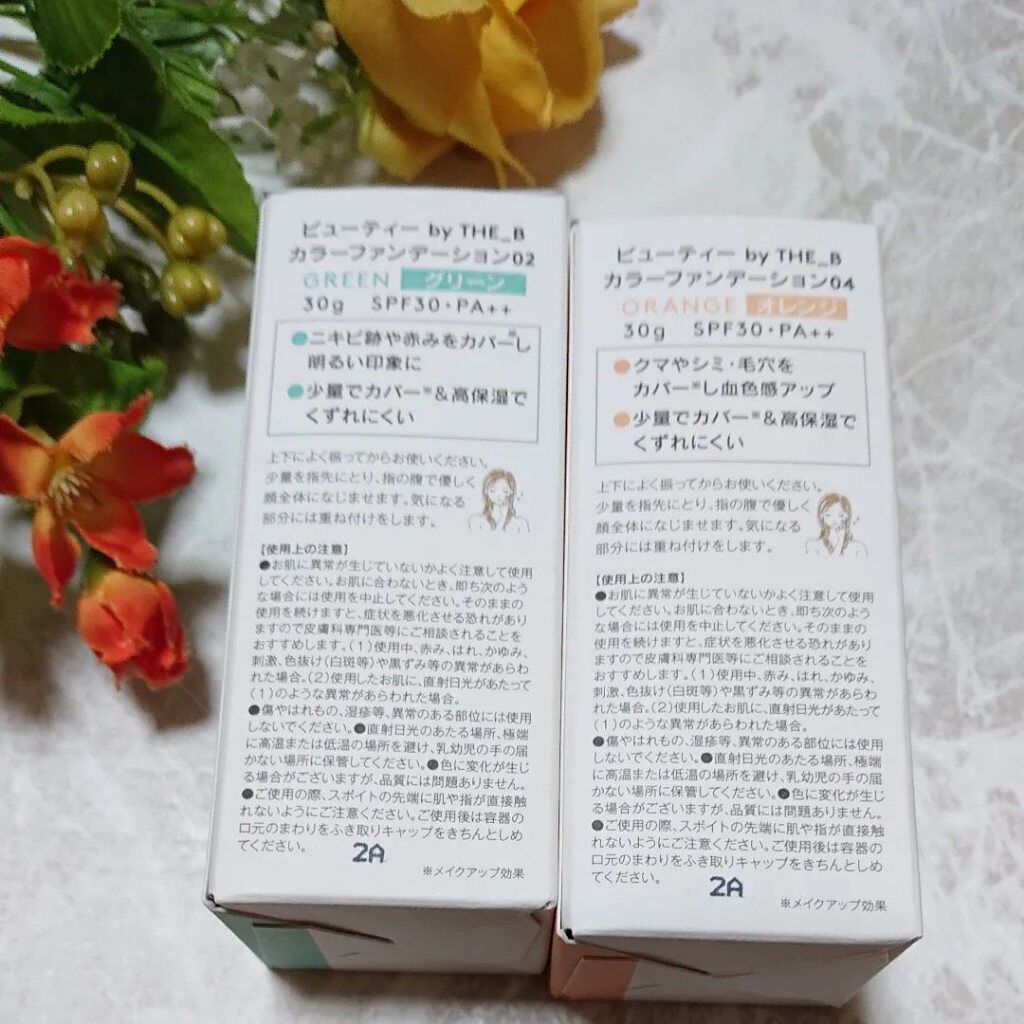 ビューティー by THE_B
カラーファンデーション02
GREEN グリーン
30g SPF30・PA++
●ニキビ跡や赤みをカバー※し
明るい印象に
●少量でカバー※&高保湿で
くずれにくい
上下によく振ってからお使いください。
少量を指先にとり、指の腹で優しく
顔全体になじませます。気になる
部分には重ね付けをします。
【使用上の注意】
●お肌に異常が生じていないかよく注意して使用
してください。お肌に合わないとき、即ち次のよう
な場合には使用を中止してください。そのままの
使用を続けますと、症状を悪化させる恐れがあり
ますので皮膚科専門医等にご相談されることを
おすすめします。(1)使用中、赤み、はれ、かゆみ、
刺激、色抜け(白斑等)や黒ずみ等の異常があらわ
れた場合。(2)使用したお肌に、直射日光があたって
(1)のような異常があらわれた場合。
●傷やはれもの、湿疹等、異常のある部位には使用
しないでください。●直射日光のあたる場所、極端
に高温または低温の場所を避け、乳幼児の手の届
かない場所に保管してください。●色に変化が生じ
る場合がございますが、品質には問題ありません。
●ご使用の際、スポイトの先端に肌や指が直接触
れないようにご注意ください。ご使用後は容器の
口元のまわりをふき取りキャップをきちんとしめ
てください。
2A
※メイクアップ効果
ビューティー by THE_B
カラーファンデーション04
ORANGE オレンジ
30g SPF30・PA++
●クマやシミ・毛穴を
カバー※し血色感アップ
●少量でカバー※&高保湿で
くずれにくい
上下によく振ってからお使いください。
少量を指先にとり、指の腹で優しく
顔全体になじませます。気になる
部分には重ね付けをします。
【使用上の注意】
●お肌に異常が生じていないかよく注意して使用
してください。お肌に合わないとき、即ち次のよう
な場合には使用を中止してください。そのままの
使用を続けますと、症状を悪化させる恐れがあり
ますので皮膚科専門医等にご相談されることを
おすすめします。(1)使用中、赤み、はれ、かゆみ、
刺激、色抜け(白斑等)や黒ずみ等の異常があらわ
れた場合。(2)使用したお肌に、直射日光があたって
(1)のような異常があらわれた場合。
●傷やはれもの、湿疹等、異常のある部位には使用
しないでください。●直射日光のあたる場所、極端
に高温または低温の場所を避け、乳幼児の手の届
かない場所に保管してください。●色に変化が生じ
る場合がございますが、品質には問題ありません。
●ご使用の際、スポイトの先端に肌や指が直接触
れないようにご注意ください。ご使用後は容器の
口元のまわりをふき取りキャップをきちんとしめ
てください。
2A
※メイクアップ効果